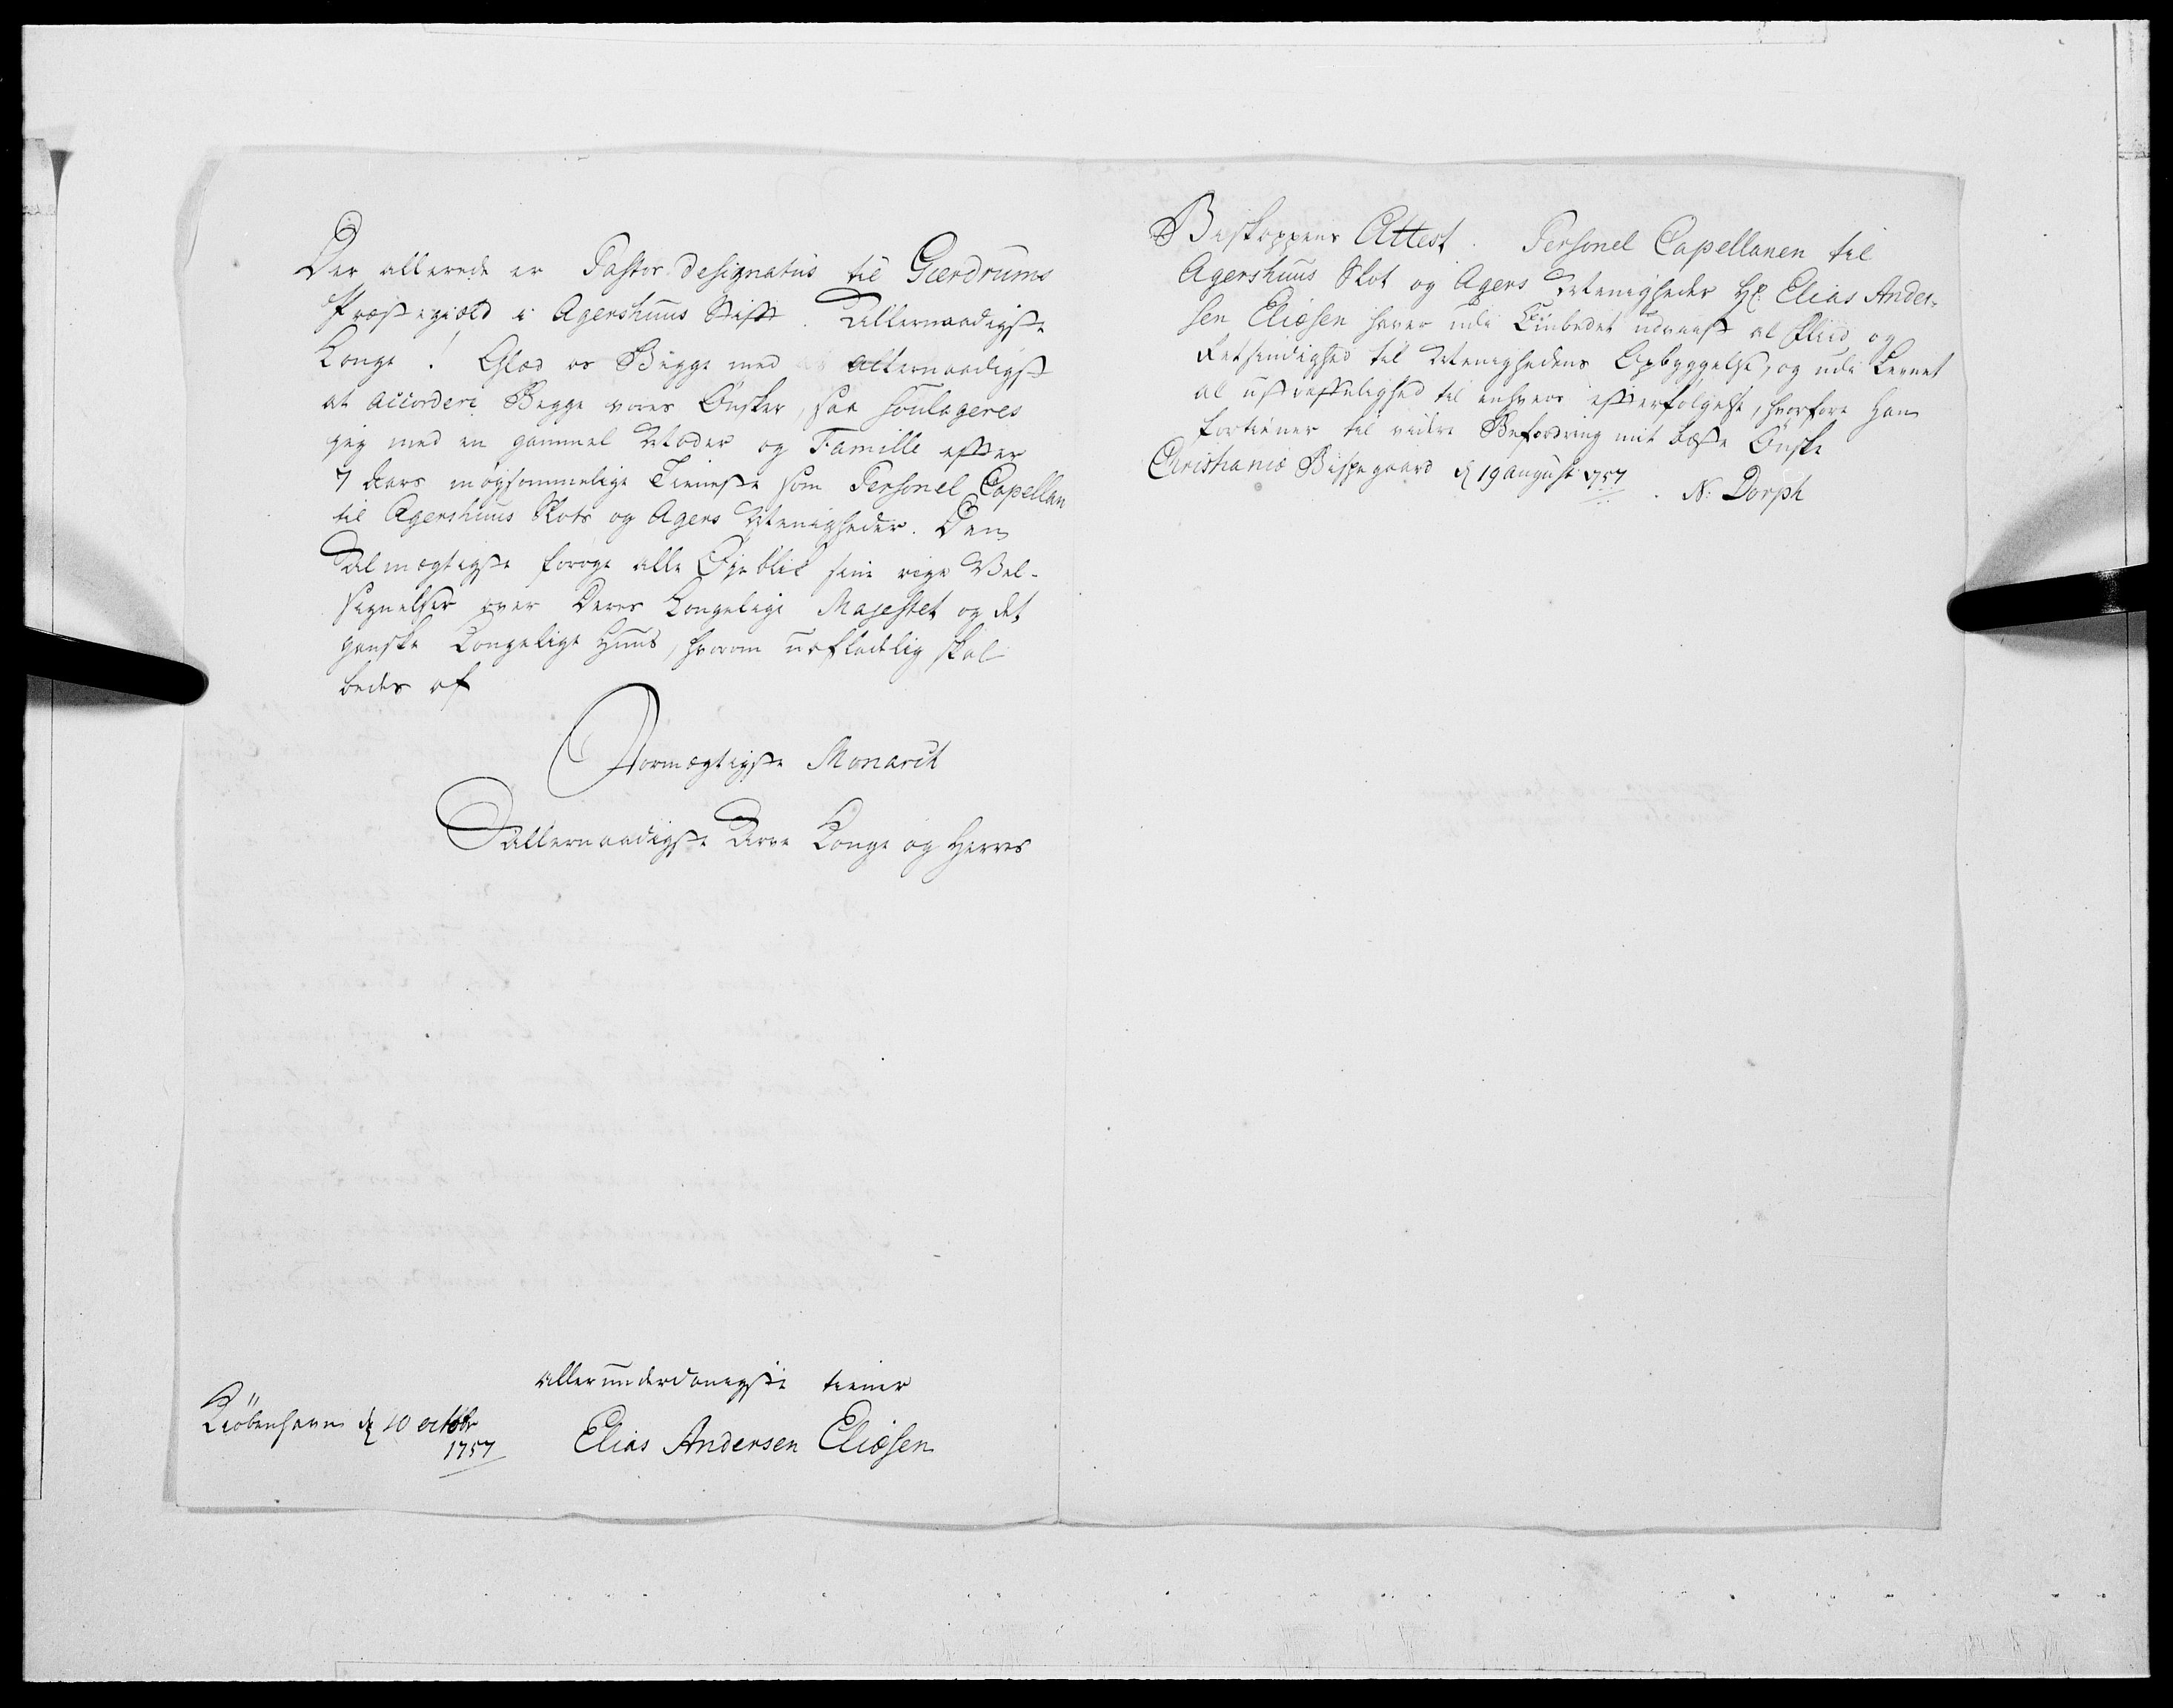 Der allerede er Pastor designatus til Gierdrums
Præstegield i Agershuus Stift. Allernaadigste
Konge! Glæd os Begge med allernaadigst
at accordere Begge vores Ønsker, saa soulageres
jeg med en gammel Moder og Famille efter
7 Aars møysommelige Tieneste som Personel Capellan
til Agershuus Slots og Agers Menigheder. Den
Almægtigste forøge alle Øjeblik sine rige Vel-
signelser over Deres Kongelige Majestet og det
ganske Kongelige Huus, hvorom uafladelig skal
bedes af
Stormægtigste Monarck
Allernaadigste Arve Konge og Herres
allerunderdanigste tiener
Kiöbenhavn d 10 octobr
1757
Elias Andersen Eliæsen
Biskoppens Attest. Personel Capellanen til
Agershuus Slot og Agers Menigheder Hr Elias Ander-
sen Eliæsen haver udi Embedet udviist al Fliid og
Retsindighed til Menighedens Opbyggelse, og udi Levnet
al ustraffelighed til enhvers efterfølgelse, hvorfore Han
fortiener til videre Befordring mit beste Ønske
Christianiæ Bispegaard d 19 august 1757. N: Dorph